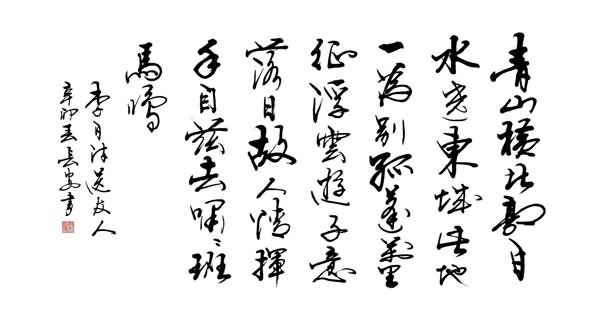 青山橫北郭白
水遶東城此地
一為別孤蓬萬里
征浮雲遊子意
落日故人情揮
手自茲去嘯〻班
馬鳴
李白詩送友人
辛卯王長安書